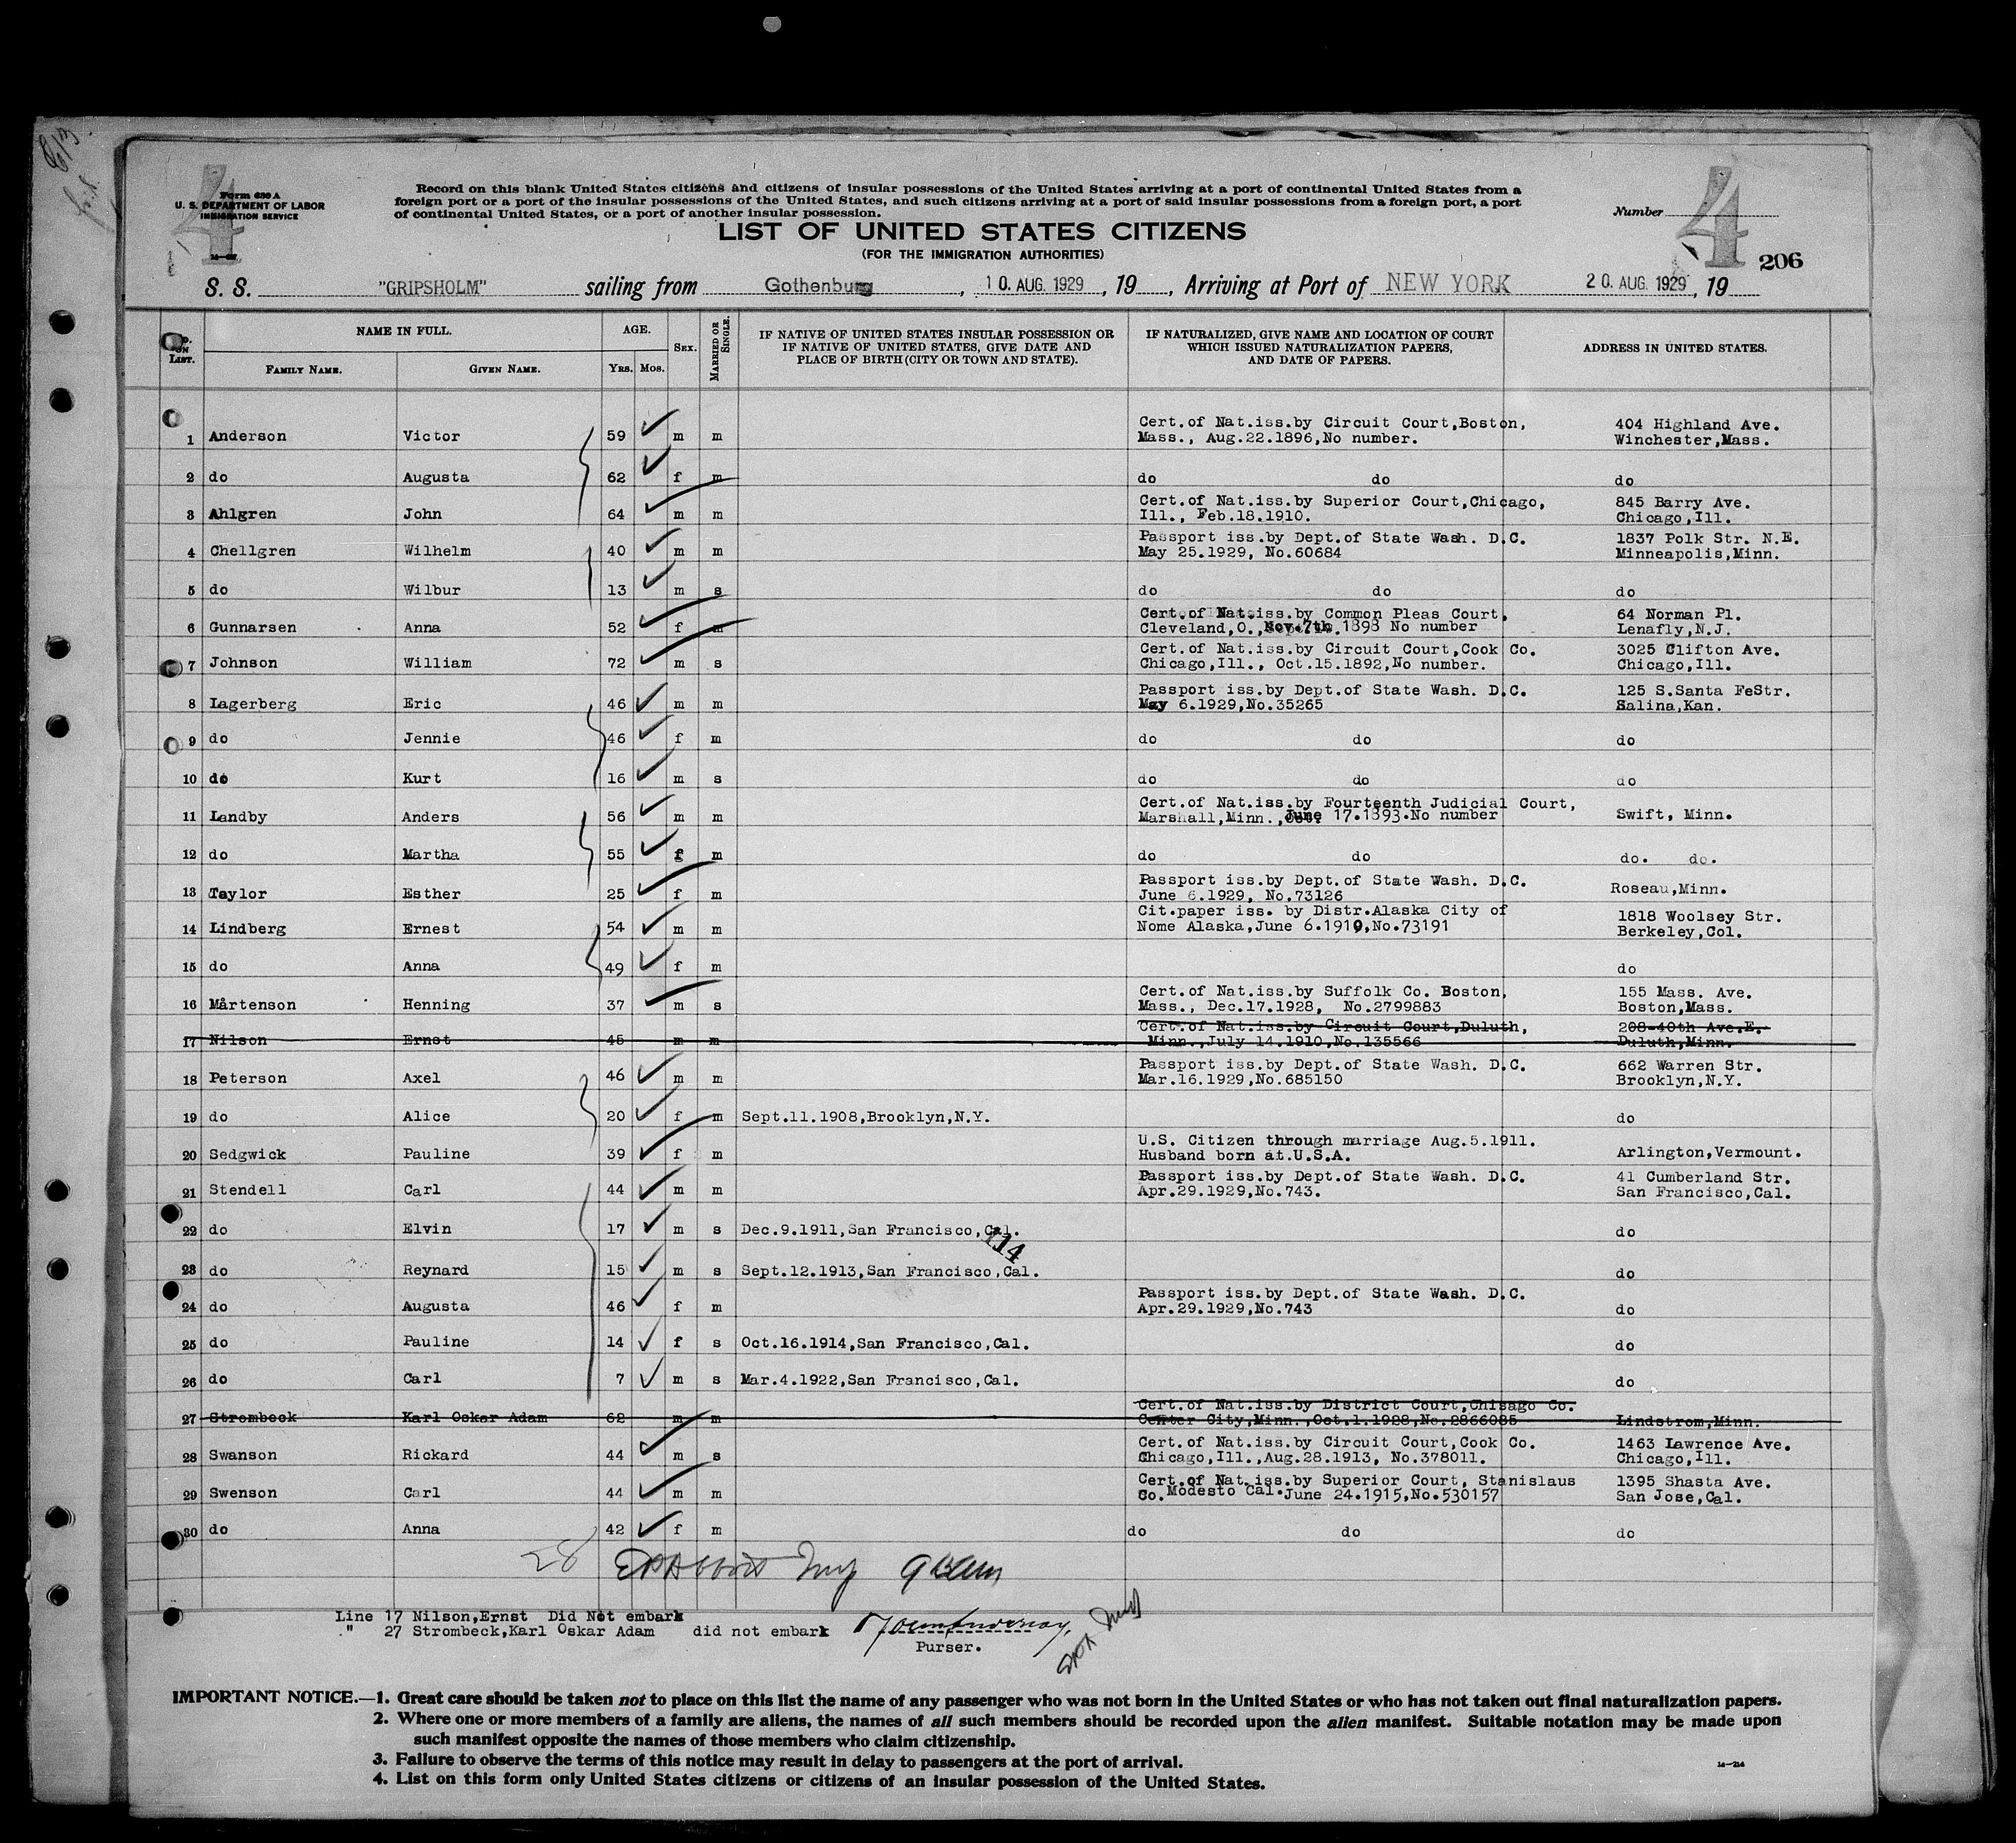 4
Form 630 A
U. S. DEPARTMENT OF LABOR
IMMIGRATION SERVICE
Record on this blank United States citizens and citizens of insular possessions of the United States arriving at a port of continental United States from a
foreign port or a port of the insular possessions of the United States, and such citizens arriving at a port of said insular possessions from a foreign port, a port
of continental United States, or a port of another insular possession.
Number 4
206
LIST OF UNITED STATES CITIZENS
(FOR THE IMMIGRATION AUTHORITIES)
S. S. "GRIPSHOLM" sailing from Gothenburg, 10. AUG. 1929, 19 , Arriving at Port of NEW YORK 20. AUG. 1929, 19
LIST.
NAME IN FULL.
FAMILY NAME. GIVEN NAME.
AGE.
YRS. MOS.
SEX.
MARRIED OR SINGLE.
IF NATIVE OF UNITED STATES INSULAR POSSESSION OR
IF NATIVE OF UNITED STATES, GIVE DATE AND
PLACE OF BIRTH (CITY OR TOWN AND STATE).
IF NATURALIZED, GIVE NAME AND LOCATION OF COURT
WHICH ISSUED NATURALIZATION PAPERS,
AND DATE OF PAPERS.
ADDRESS IN UNITED STATES.
1 Anderson Victor 59 m m Cert.of Nat.iss.by Circuit Court,Boston, 404 Highland Ave.
Mass., Aug.22.1896,No number. Winchester,Mass.
2 do Augusta 62 f m do do do
3 Ahlgren John 64 m m Cert.of Nat.iss.by Superior Court,Chicago, 845 Barry Ave.
Ill., Feb.18.1910. Chicago,Ill.
4 Chellgren Wilhelm 40 m m Passport iss.by Dept.of State Wash. D.C. 1837 Polk Str. N.E.
May 25.1929, No.60684 Minneapolis,Minn.
5 do Wilbur 13 m s do do do
6 Gunnarsen Anna 52 f m Cert.of Nat.iss.by Common Pleas Court, 64 Norman Pl.
Cleveland,O., Nov.7th.1898 No number Lenafly,N.J.
7 Johnson William 72 m s Cert.of Nat.iss.by Circuit Court,Cook Co. 3025 Clifton Ave.
Chicago,Ill., Oct.15.1892,No number. Chicago,Ill.
8 Lagerberg Eric 46 m m Passport iss.by Dept.of State Wash. D.C. 125 S.Santa FeStr.
May 6.1929,No.35265 Salina,Kan.
9 do Jennie 46 f m do do do
10 do Kurt 16 m s do do do
11 Landby Anders 56 m m Cert.of Nat.iss.by Fourteenth Judicial Court, Swift, Minn.
Marshall,Minn., June 17.1893.No number
12 do Martha 55 f m do do do. do.
13 Taylor Esther 25 f m Passport iss.by Dept.of State Wash. D.C. Roseau,Minn.
June 6.1929, No.73126
14 Lindberg Ernest 54 m m Cit.paper iss. by Distr.Alaska City of 1818 Woolsey Str.
Nome Alaska,June 6.1910,No.73191 Berkeley,Col.
15 do Anna 49 f m do
16 Mårtenson Henning 37 m s Cert.of Nat.iss.by Suffolk Co. Boston, 155 Mass. Ave.
Mass., Dec.17.1928, No.2799883 Boston,Mass.
17 Nilson Ernst 45 m m Cert.of Nat.iss.by Circuit Court,Duluth, 208-40th Ave.E.
Minn.,July 14.1910,No.135566 Duluth,Minn.
18 Peterson Axel 46 m m Passport iss.by Dept.of State Wash. D.C. 662 Warren Str.
Mar.16.1929,No.685150 Brooklyn,N.Y.
19 do Alice 20 f m Sept.11.1908,Brooklyn,N.Y. do
20 Sedgwick Pauline 39 f m U.S. Citizen through marriage Aug.5.1911. Arlington,Vermount.
Husband born at.U.S.A.
21 Stendell Carl 44 m m Passport iss.by Dept.of State Wash. D.C. 41 Cumberland Str.
Apr.29.1929,No.743. San Francisco,Cal.
22 do Elvin 17 m s Dec.9.1911,San Francisco,Cal. do
114
23 do Reynard 15 m s Sept.12.1913,San Francisco,Cal. do
24 do Augusta 46 f m Passport iss.by Dept.of State Wash. D.C. do
Apr.29.1929,No.743
25 do Pauline 14 f s Oct.16.1914,San Francisco,Cal. do
26 do Carl 7 m s Mar.4.1922,San Francisco,Cal. do
27 Strombeck Karl Oskar Adam 62 m m Cert.of Nat.iss.by District Court,Chisago Co.
Center City,Minn.,Oct.1.1928,No.2866085 Lindstrom,Minn.
28 Swanson Rickard 44 m s Cert.of Nat.iss.by Circuit Court,Cook Co. 1463 Lawrence Ave.
Chicago,Ill.,Aug.28.1913, No.378011. Chicago,Ill.
29 Swenson Carl 44 m m Cert.of Nat.iss.by Superior Court, Stanislaus 1395 Shasta Ave.
Co. Modesto Cal. June 24.1915,No.530157 San Jose,Cal.
30 do Anna 42 f m do do do
28
Line 17 Nilson,Ernst Did Not embark
" 27 Strombeck,Karl Oskar Adam did not embark
Purser.
IMPORTANT NOTICE.—1. Great care should be taken not to place on this list the name of any passenger who was not born in the United States or who has not taken out final naturalization papers.
2. Where one or more members of a family are aliens, the names of all such members should be recorded upon the alien manifest. Suitable notation may be made upon
such manifest opposite the names of those members who claim citizenship.
3. Failure to observe the terms of this notice may result in delay to passengers at the port of arrival.
4. List on this form only United States citizens or citizens of an insular possession of the United States.
14—214